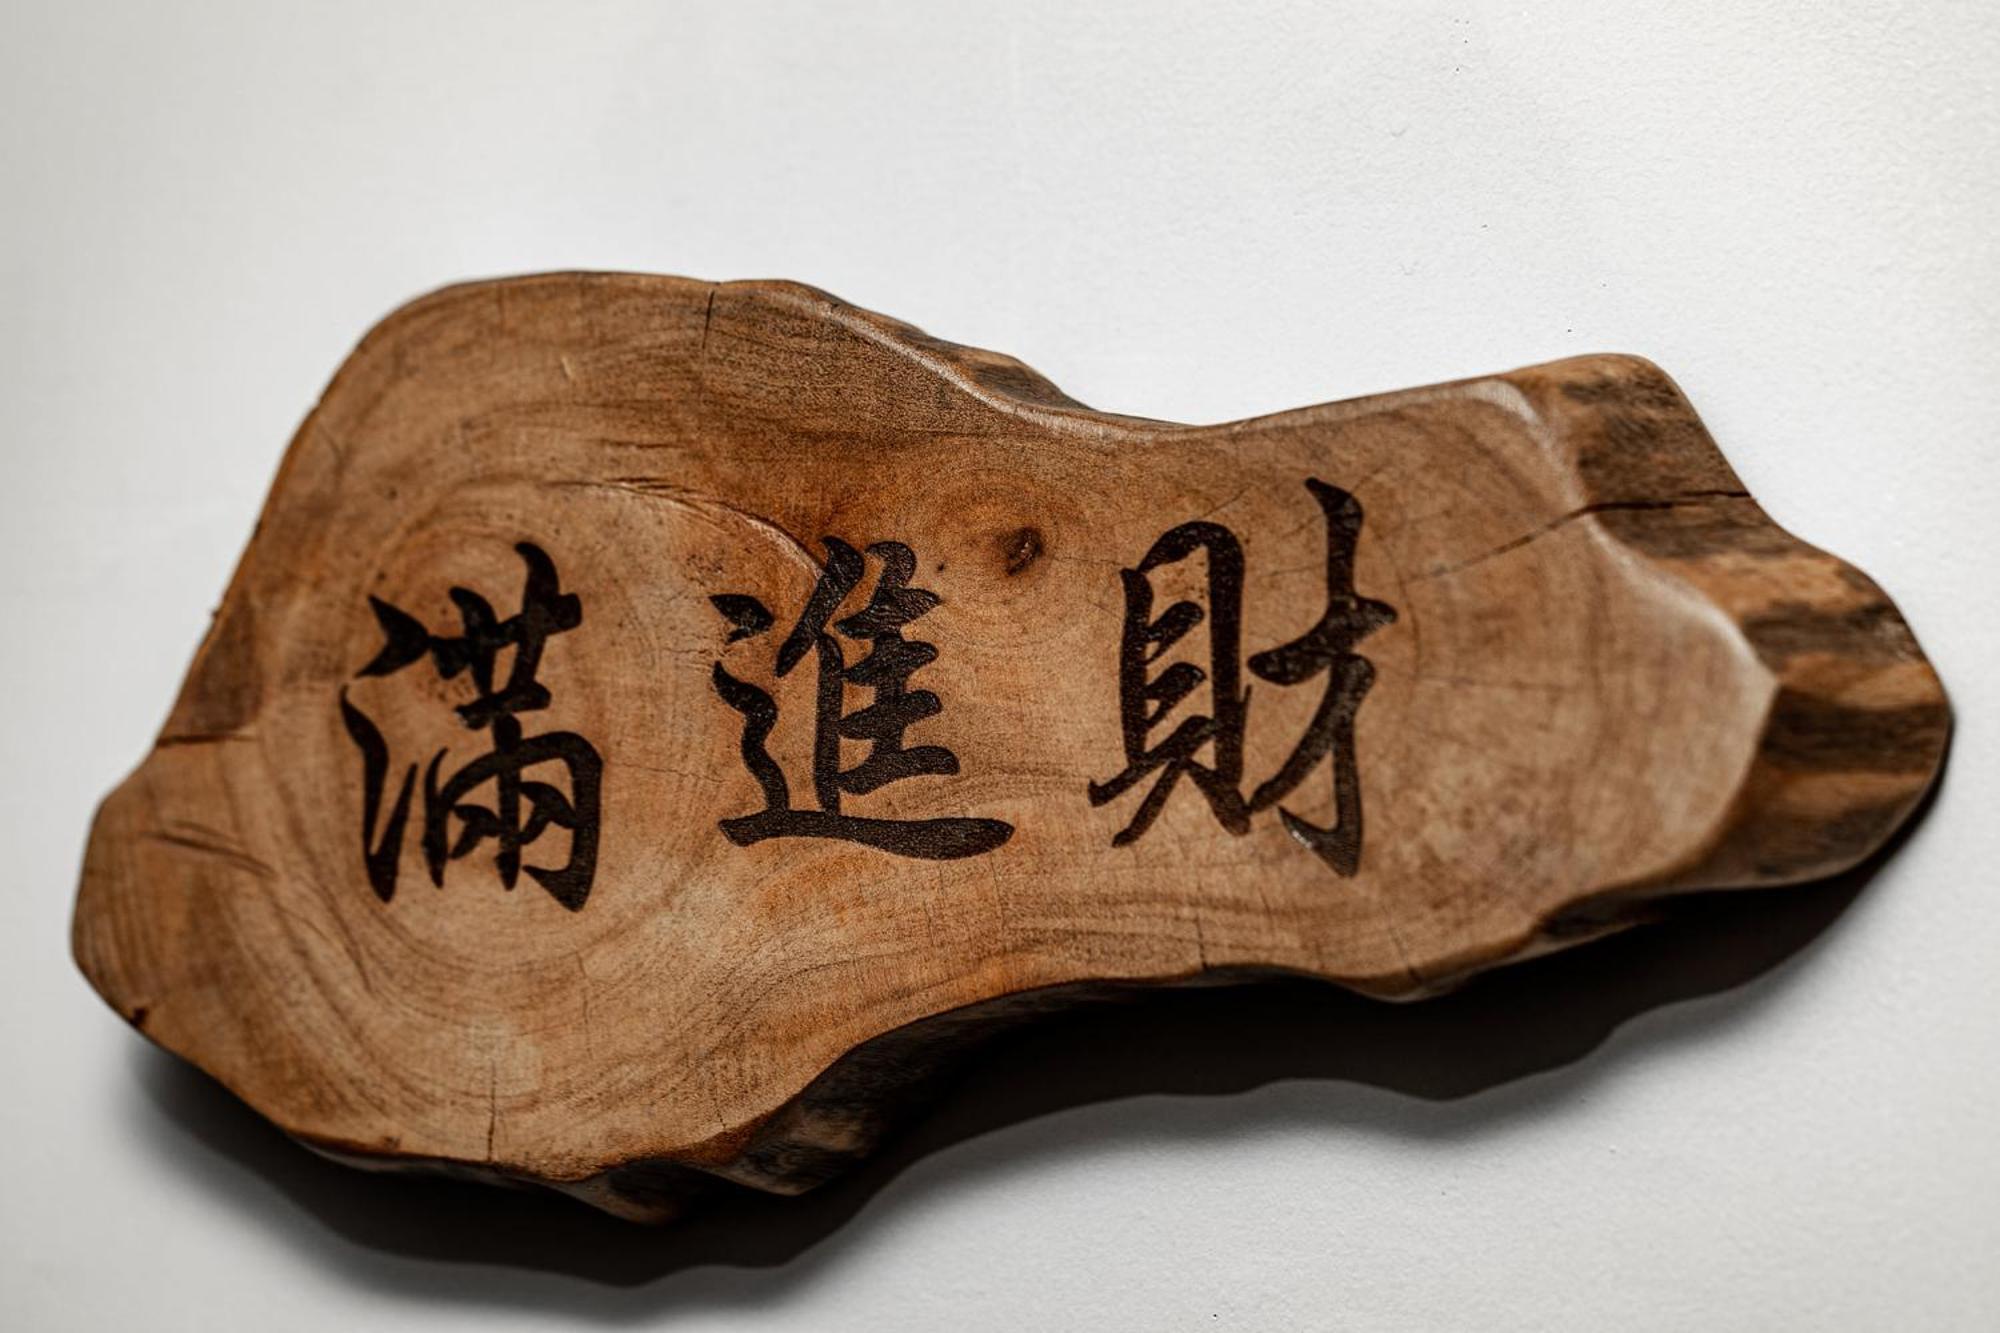 滿進財